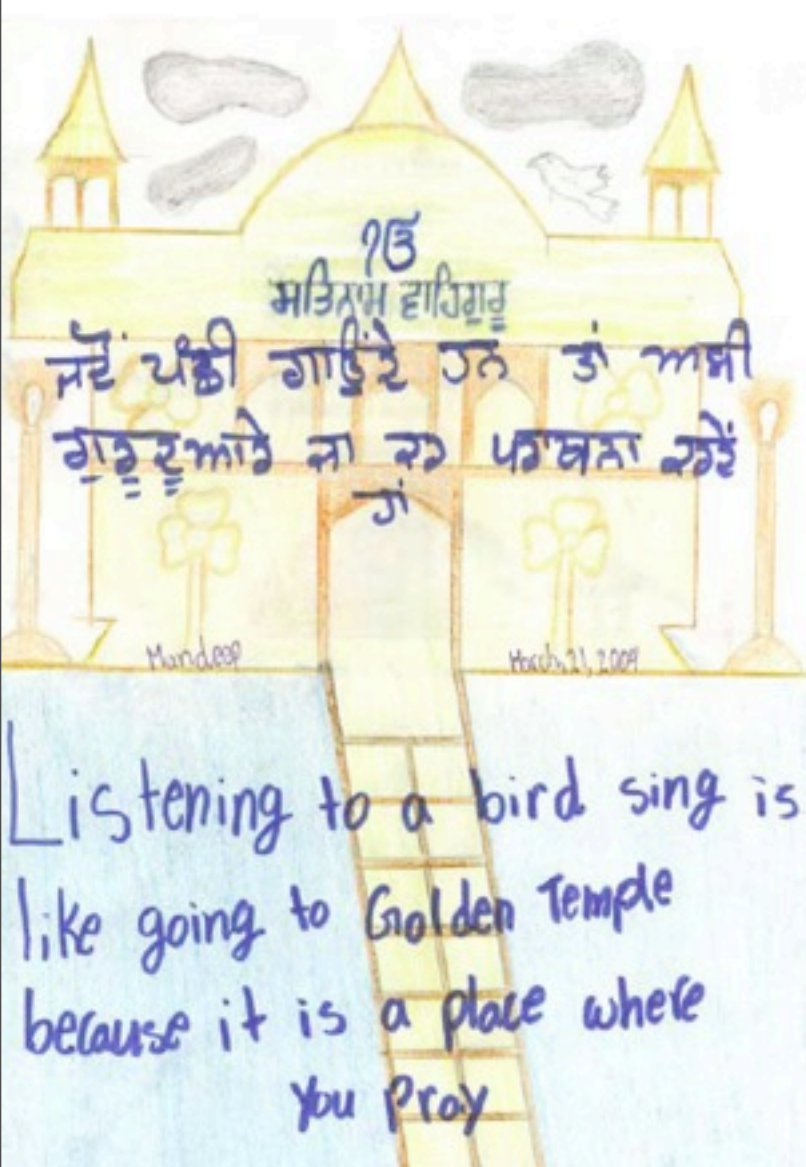 ੴ
ਸਤਿਨਾਮ ਵਾਹਿਗੁਰੂ
ਜਦੋਂ ਪੰਛੀ ਗਾਉਂਦੇ ਹਨ ਤਾਂ ਅਸੀ
ਗੁਰੂਦੂਆਰੇ ਜਾ ਕਰ ਪਰਾਥਨਾ ਕਰਦੇਂ
ਹਾਂ
Mandeep March, 21, 2009
Listening to a bird sing is
like going to Golden Temple
because it is a place where
you pray